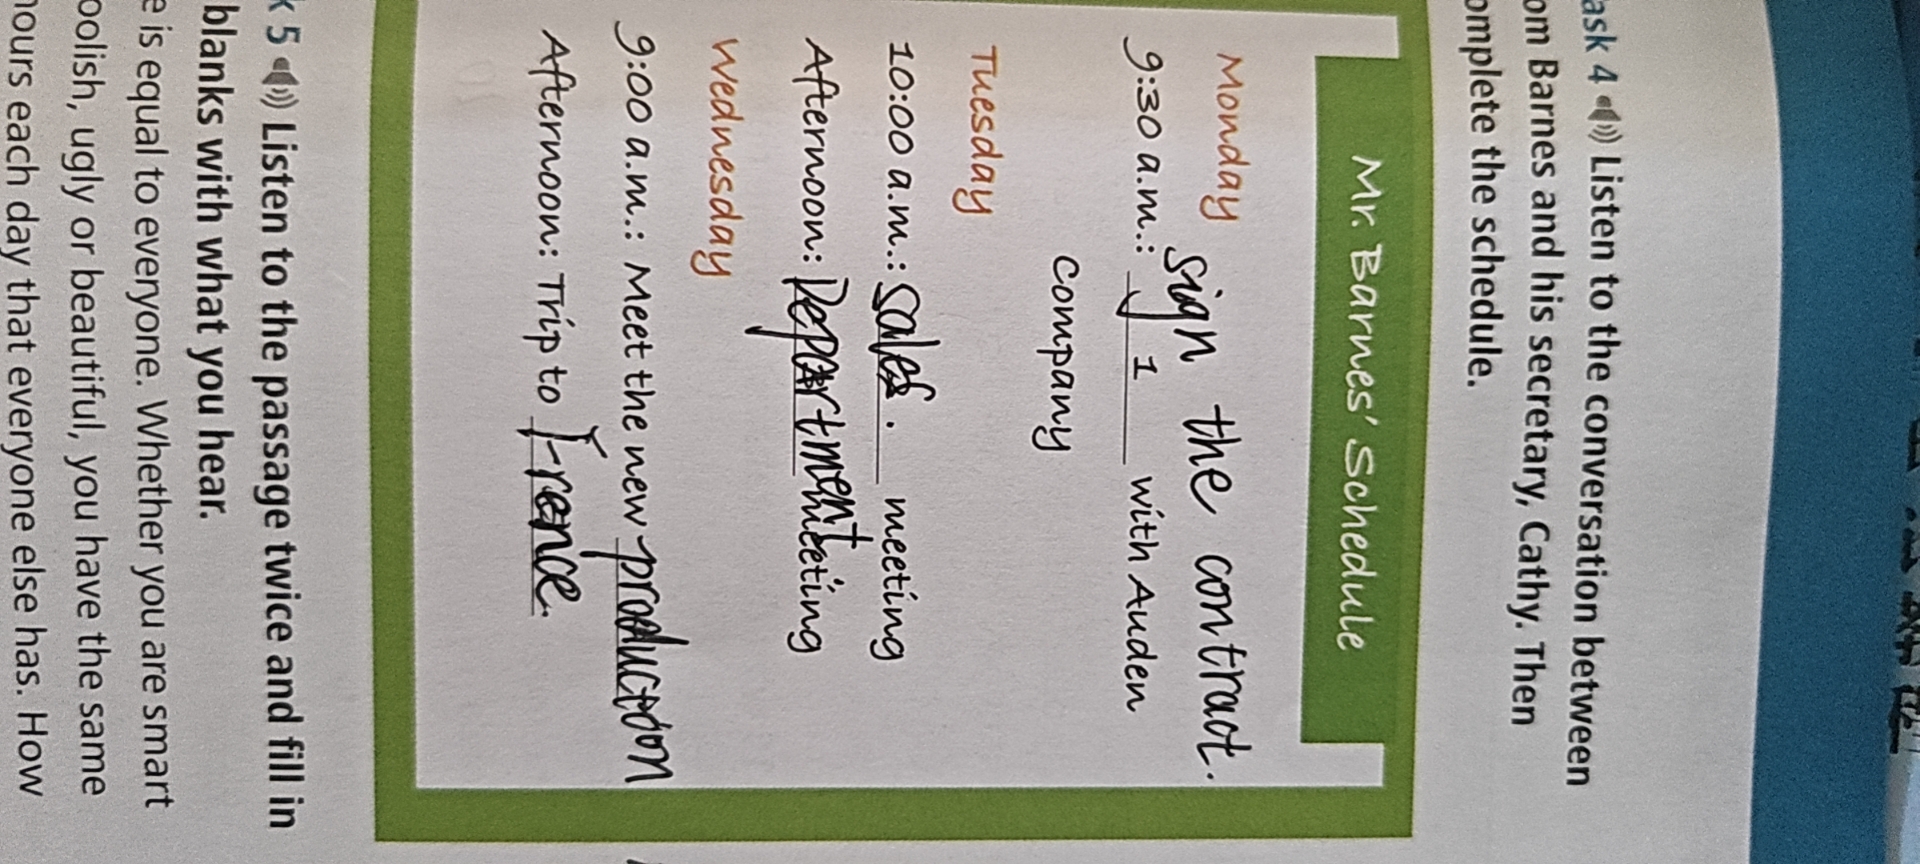 ask 4 Listen to the conversation between
om Barnes and his secretary, Cathy. Then
omplete the schedule.
Mr. Barnes' Schedule
Monday
sign the contract.
9:30 a.m.: 1 with Auden
company
Tuesday
10:00 a.m.: sales. meeting
Afternoon: Department meeting
Wednesday
9:00 a.m.: Meet the new production
Afternoon: Trip to France.
k 5 Listen to the passage twice and fill in
blanks with what you hear.
e is equal to everyone. Whether you are smart
oolish, ugly or beautiful, you have the same
hours each day that everyone else has. How